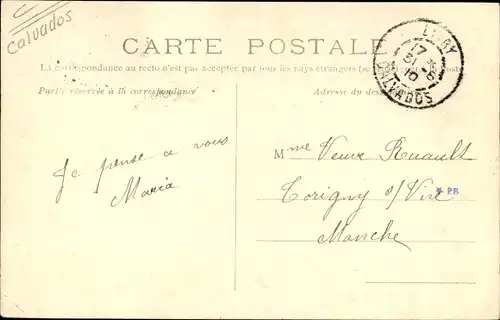 Calvados
CARTE POSTALE
La correspondance au recto n'est pas acceptée par tous les pays étrangers (se
Partie réservée à la correspondance
Adresse du des
CALVADOS
Je pense a vous
Maria
Mme Veuve Ruault
Torigny s/ Vire
Manche
PB